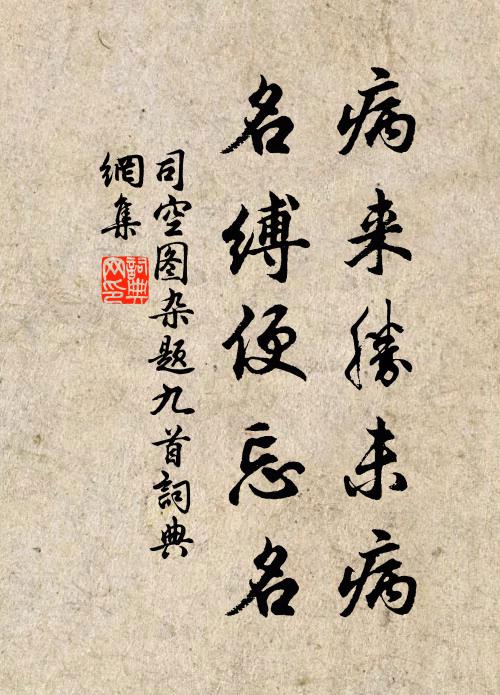 病来勝未病
名缚便忘名
司空图杂题九首詞典
網集
詞典
网印